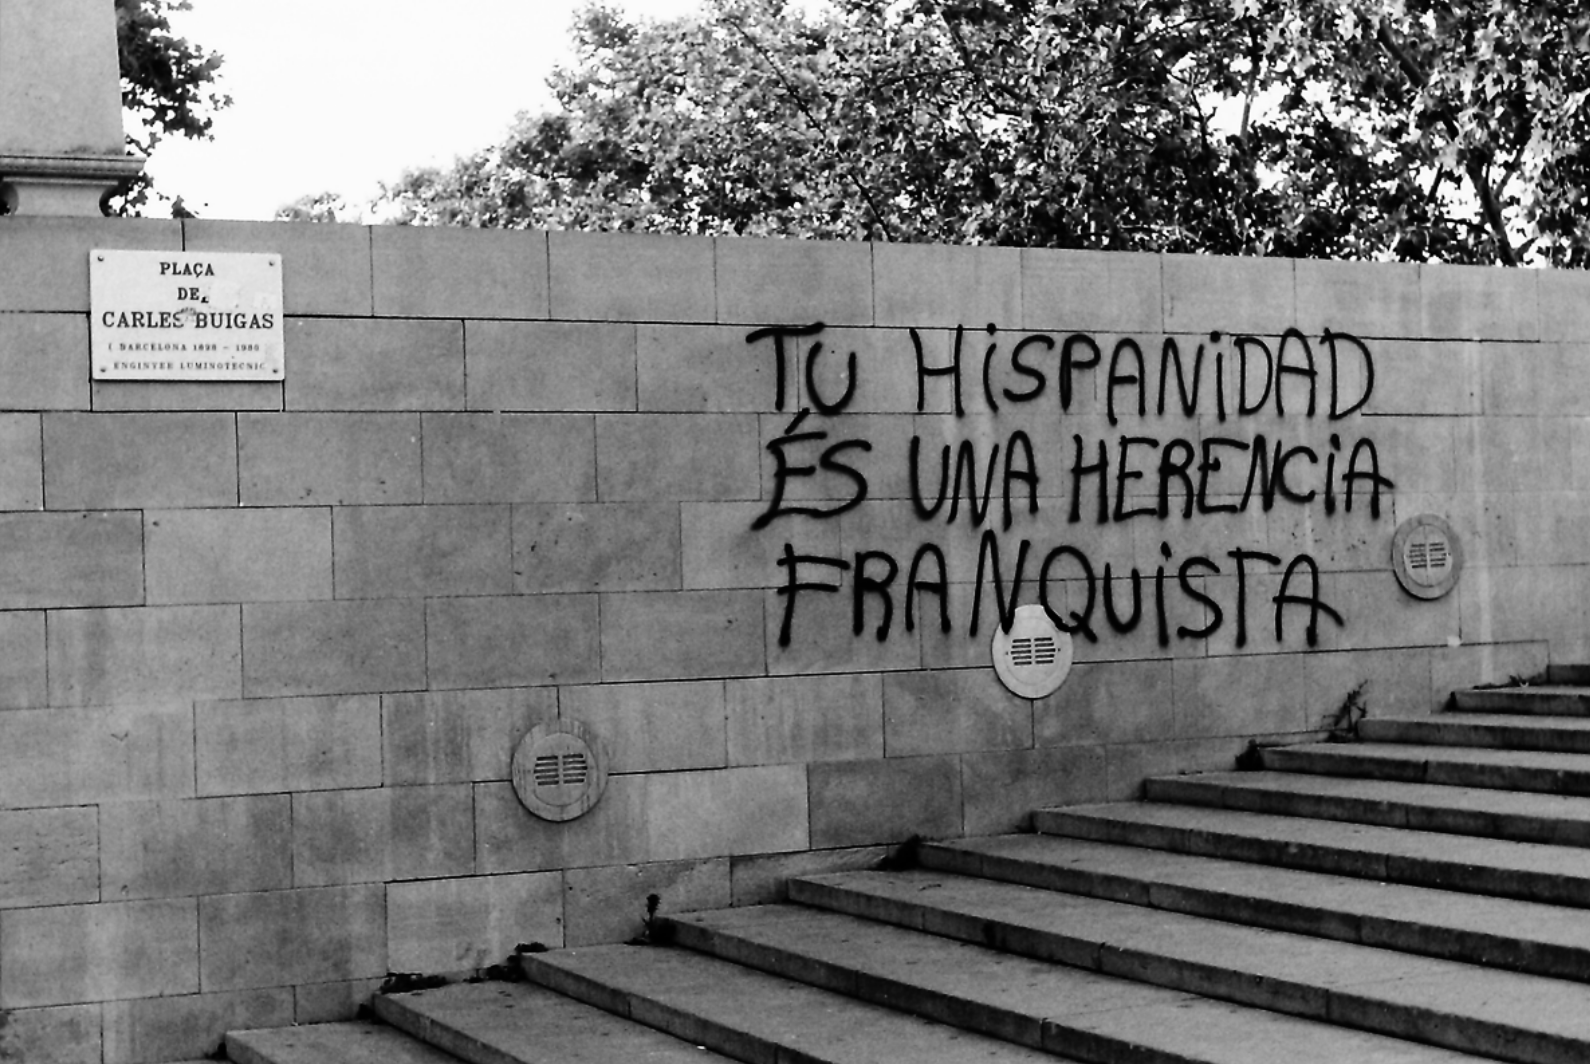 PLAÇA
DE
CARLES BUIGAS
( BARCELONA 1898 - 1980
ENGINYER LUMINOTECNIC
TU HiSPANiDAD
ÉS UNA HERENCiA
FRANQUiSTA